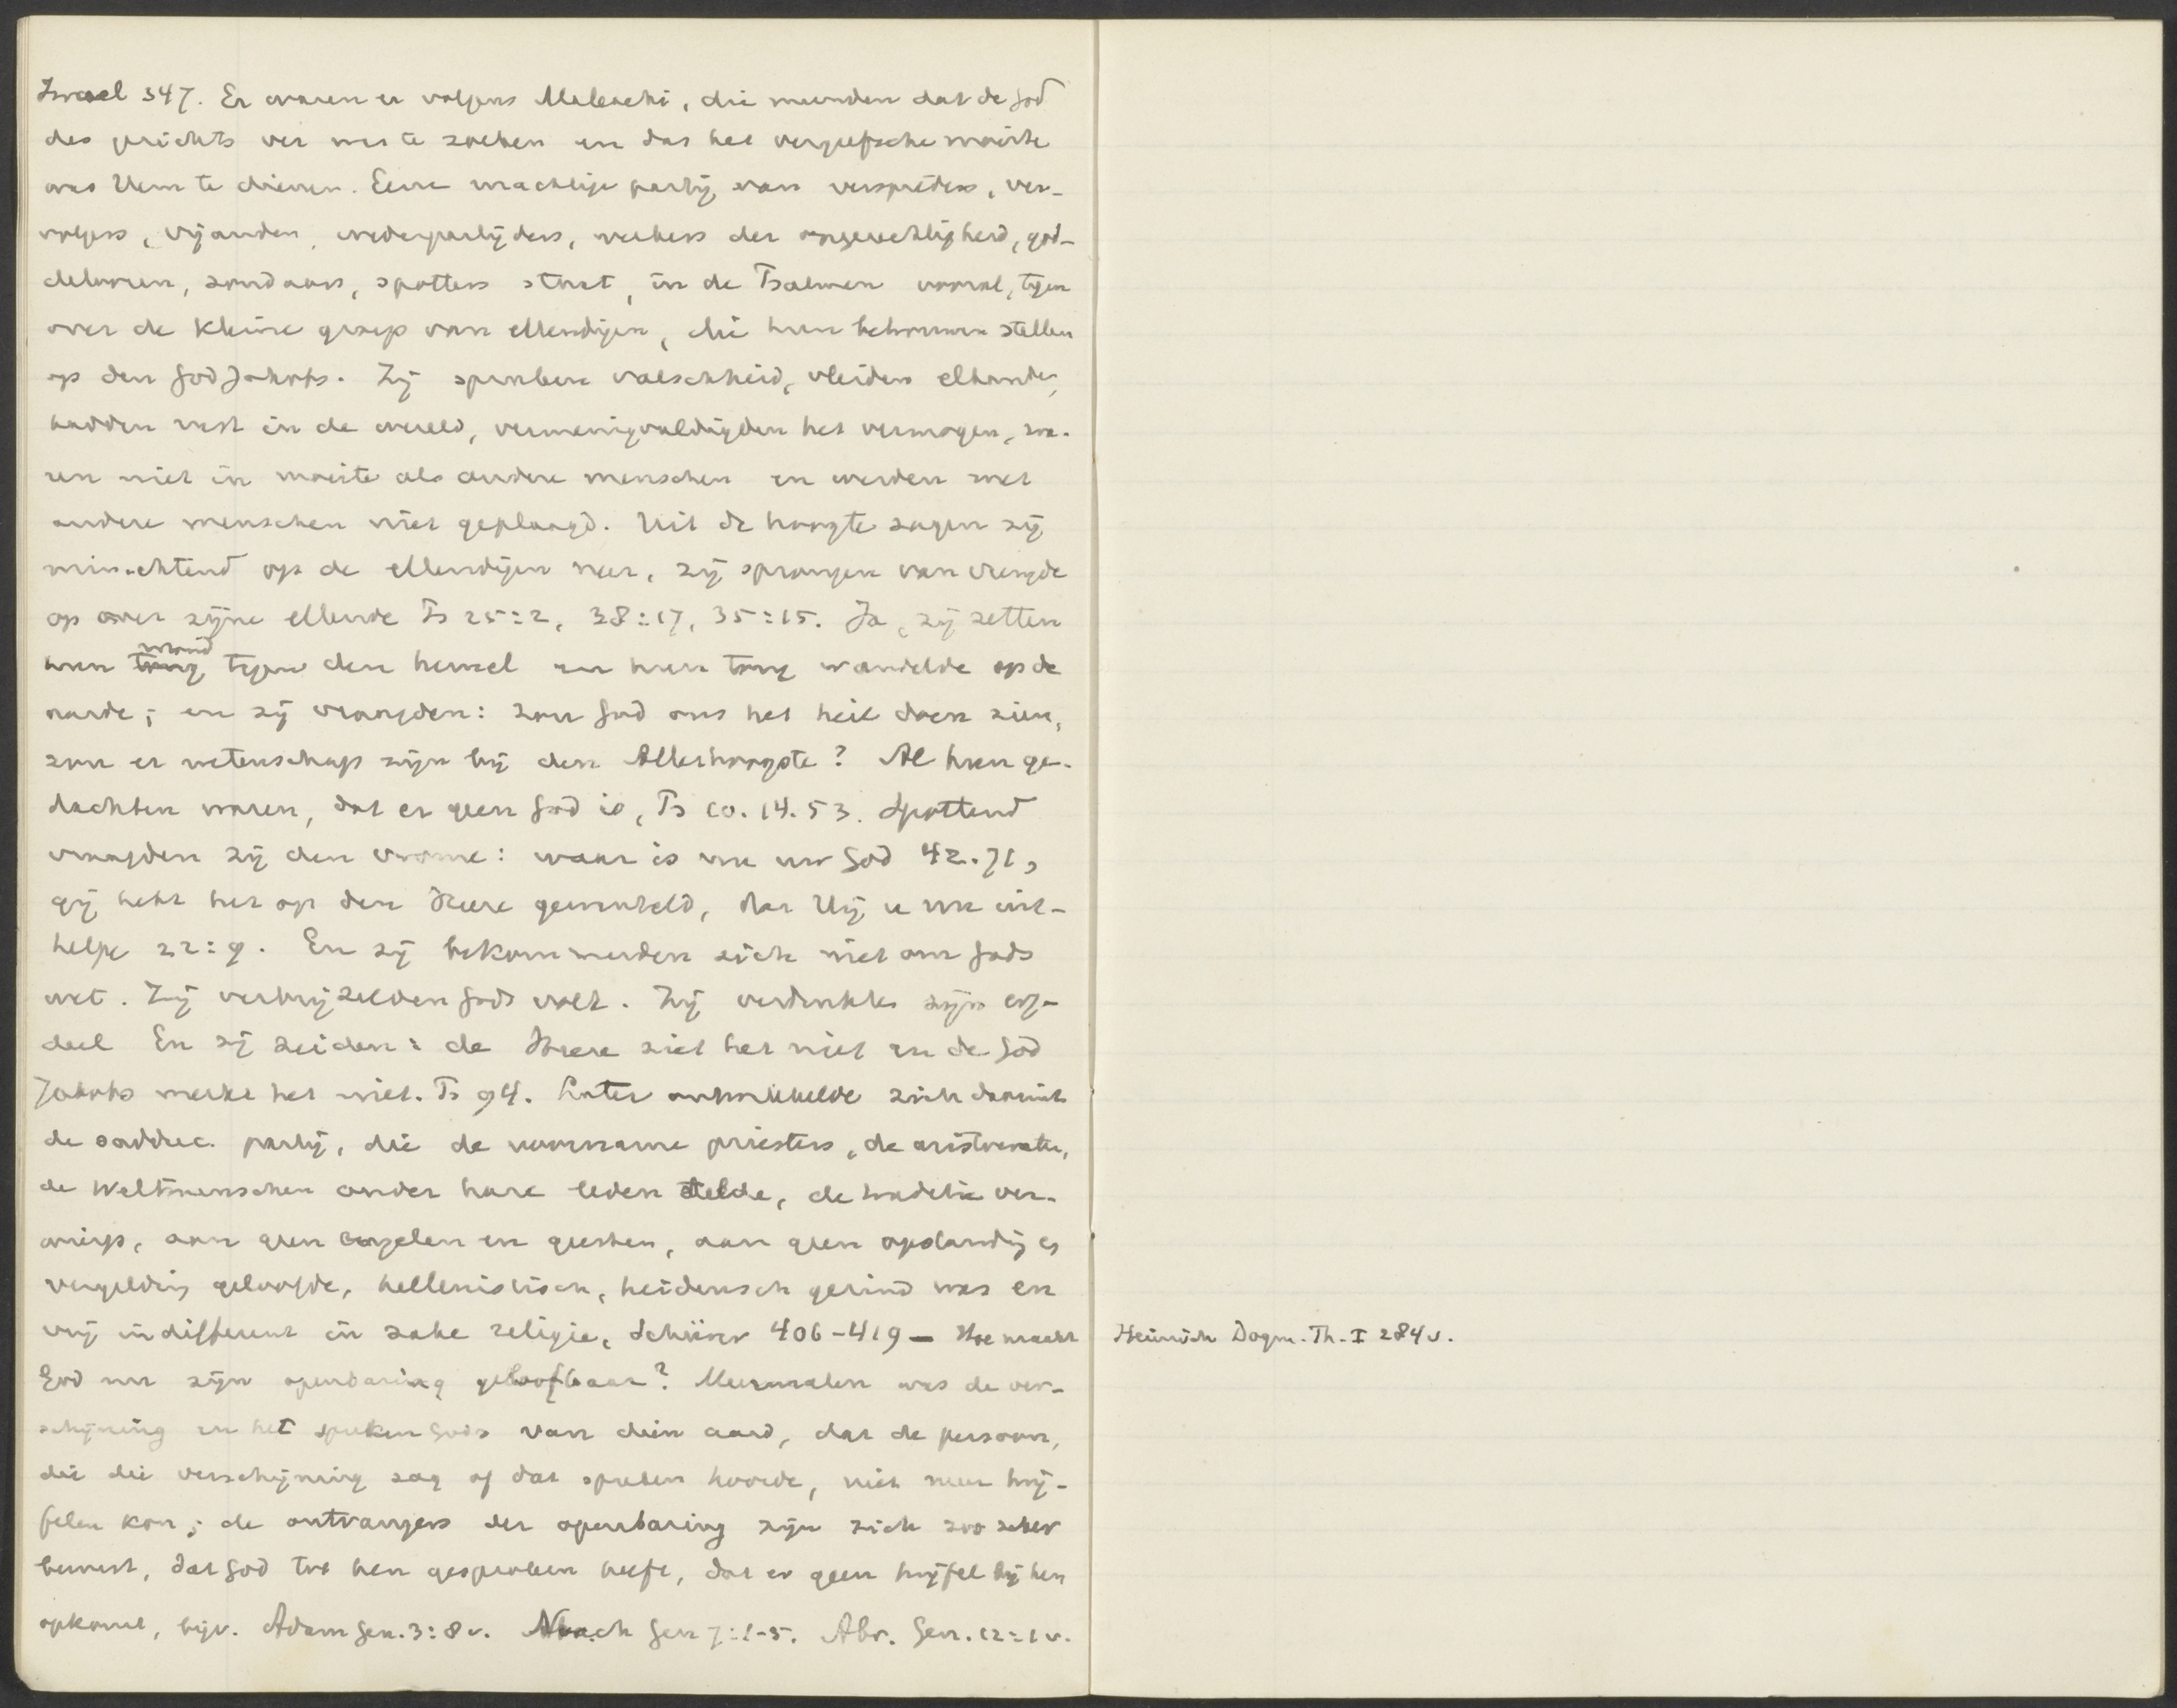 Israel 347. Er waren er volgens Maleachi, die meenden dat de God
des gerichts ver was te zoeken en dat het vergeefsche moeite
was Hem te dienen. Eene machtige partij van verspieders, ver-
volgers, vijanden, wederpartijders, werkers der ongerechtigheid, god-
deloozen, zondaars, spotters staat, in de Psalmen vooral, tegen
over de kleine groep van ellendigen, die hun betrouwen stellen
op den God Jakobs. Zij spraken valschheid, vleiden elkander,
hadden rust in de wereld, vermenigvuldigden het vermogen, wa-
ren niet in moeite als andere menschen en werden met
andere menschen niet geplaagd. Uit de hoogte zagen zij
minachtend op de ellendigen neer, zij sprongen van vreugde
op over zijne ellende Ps 25:2, 38:17, 35:15. Ja, zij zetten
hun tong mond tegen den hemel en hun tong wandelde op de
aarde; en zij vraagden: zou God ons het heil doen zien,
zou er wetenschap zijn bij den Allerhoogste? Al hun ge-
dachten waren, dat er geen God is, Ps 10. 14. 53. Spottend
vraagden zij den vrome: waar is nu uw God 42. 71,
gij hebt het op den Heere gewenteld, dat Hij u nu uit-
helpe 22:9. En zij bekommerden zich niet om Gods
wet. Zij verbrijzelden Gods volk. Zij verdrukten zijn erf-
deel En zij zeiden: de Heere ziet het niet en de God
Jakobs merkt het niet. Ps 94. Later ontwikkelde zich daaruit
de sadduc. partij, die de voorname priesters, de aristocraten,
de Weltmenschen onder hare leden telde, de traditie ver-
wierp, aan geen engelen en geesten, aan geen opstanding en
vergelding geloofde, hellenistisch, heidensch gezind was en
vrij indifferent in zake religie, Schürer 406-419 – Hoe maakt
God nu zijn openbaring geloofbaar? Meermalen was de ver-
schijning en het spreken Gods van dien aard, dat de persoon,
die die verschijning zag of dat spreken hoorde, niet meer twij-
felen kon; de ontvangers der openbaring zijn zich zoo zeker
bewust, dat God tot hen gesproken heeft, dat er geen twijfel bij hen
opkomt, bijv. Adam Gen. 3:8v. Noach Gen 7:1-5. Abr. Gen. 12:1v.
Heinrich Dogm. Th. I 284v.